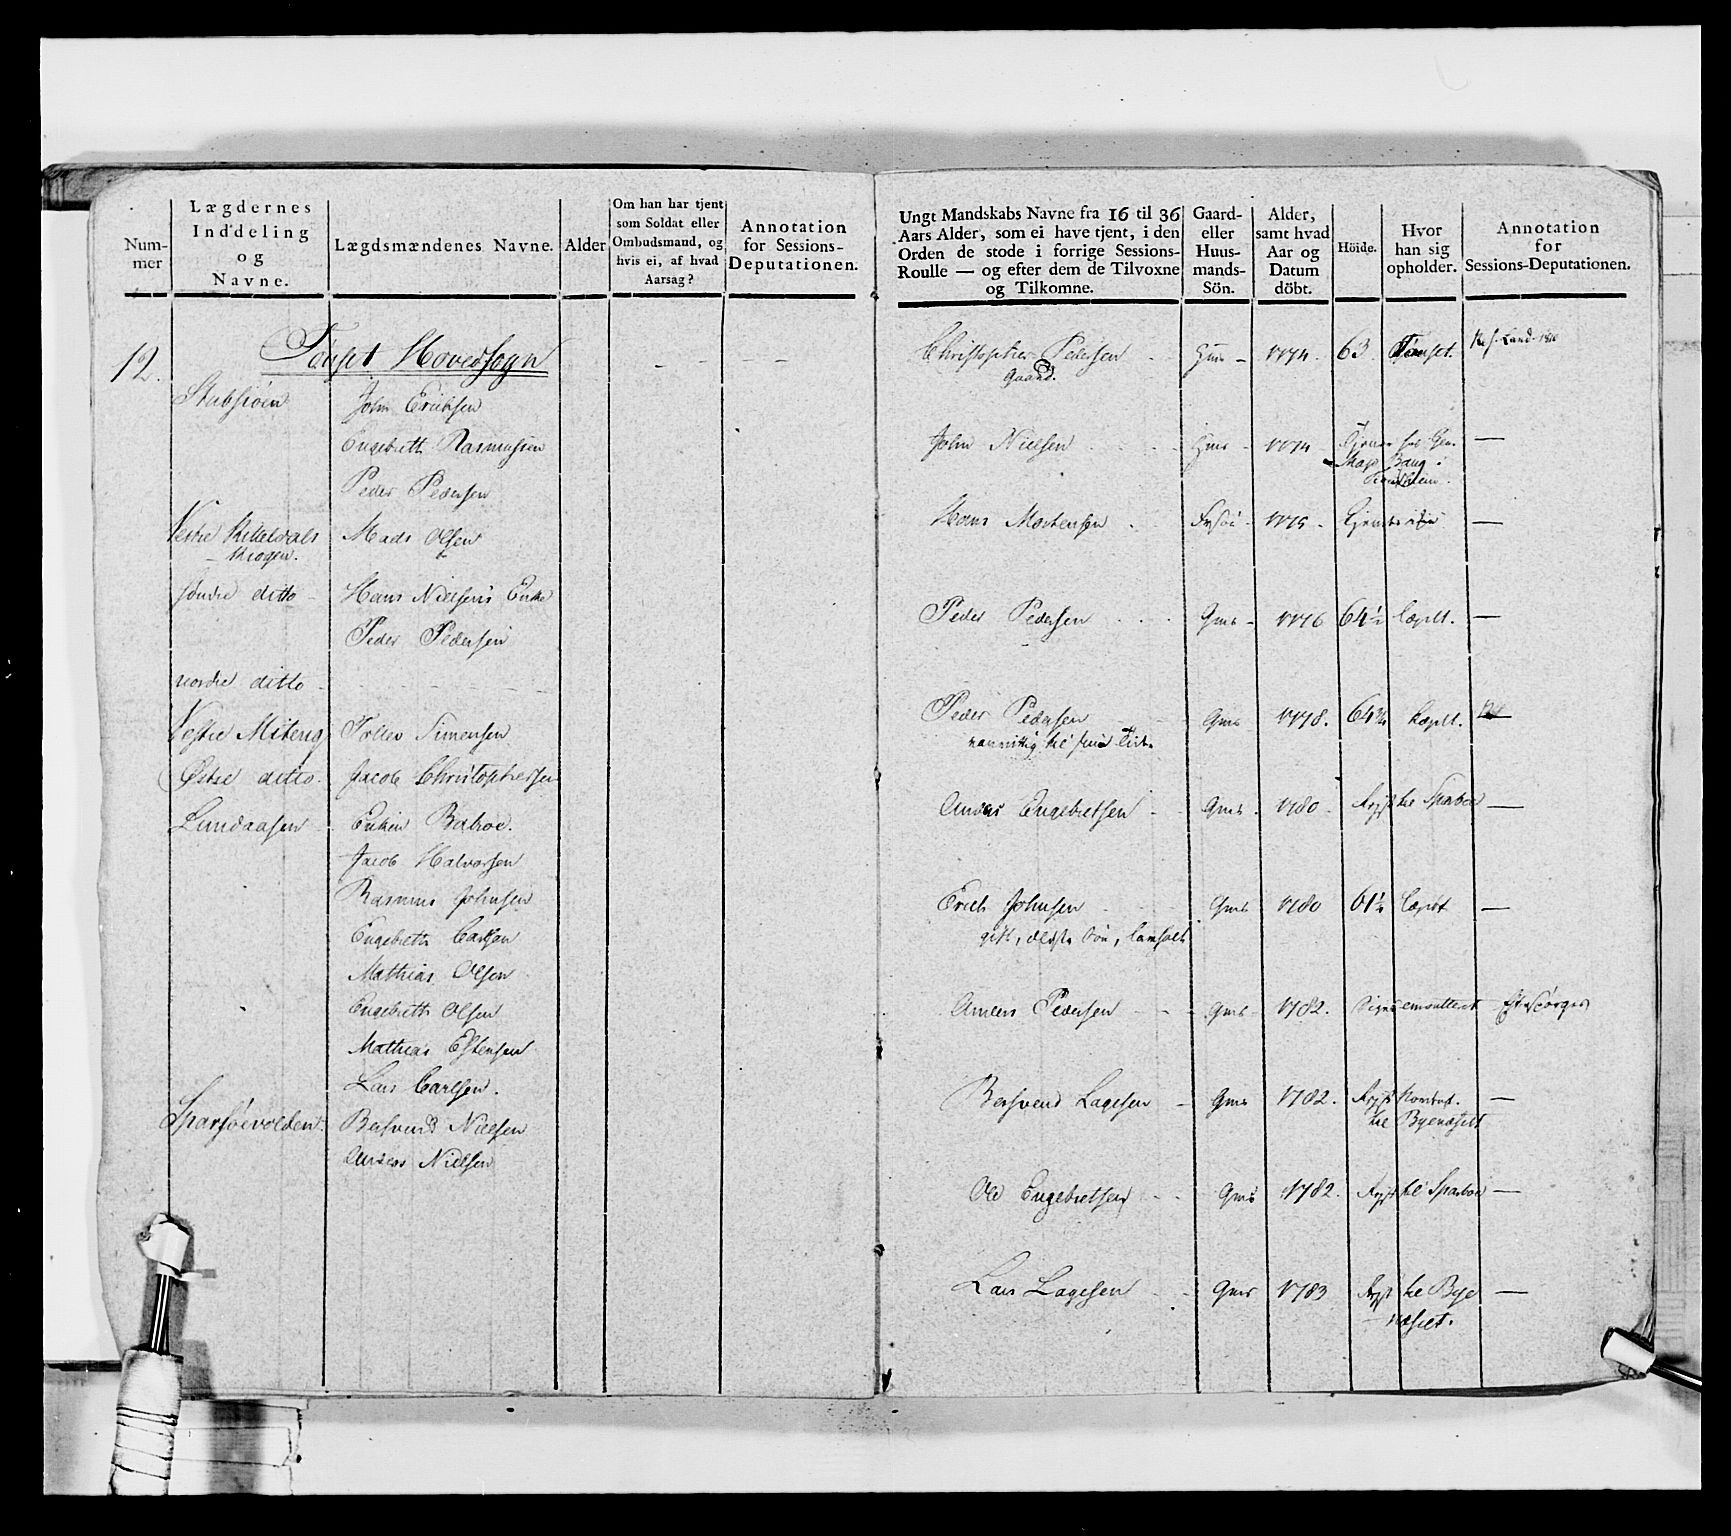 Num-
mer
Lægdernes
Inddeling
og
Navne.
Lægdsmændenes Navne.
Alder
Om han har tjent
som Soldat eller
Ombudsmand, og
hvis ei, af hvad
Aarsag?
Annotation
for Sessions-
Deputationen.
12.
Tønset Hovedsogn
Stubsiøen John Erichsen
Engebreth Rasmussen
Peder Pedersen
Vestre Kittelsdals Mads Olsen
Krogen.
søndre ditto Hans Nielsens Enke
Peder Pedersen
nordre ditto
Vestre Miteng Tollev Simensen
Østre ditto. Jacob Christophersen
Lundaasen Enken Balroe.
Jacob Halvorsen
Rasmus Johnsen
Engebreth Carlsen
Mathias Olsen
Engebreth Olsen
Mathias Estensen
Lars Carlsen.
Sparsøevolden. Bersvend Nielsen
Anders Nielsen
Ungt Mandskabs Navne fra 16 til 36
Aars Alder, som ei have tjent, i den
Orden de stode i forrige Sessions-
Roulle — og efter dem de Tilvoxne
og Tilkomne.
Gaard-
eller
Huus-
mands-
Sön.
Alder,
samt hvad
Aar og
Datum
döbt.
Höide.
Hvor
han sig
opholder.
Annotation
for
Sessions-Deputationen.
Christopher Pedersen 1774. 63 Tønset.
Gaard.
John Nielsen Gms 1774 —
Hans Mortensen 1775 —
Peder Pedersen Gms 1776 64½ Lægdt. —
Peder Pedersen Gms 1778. 64¾ Lægdt.
vanvittig
Anders Engebretsen Gms 1780 Sparboe —
Erich Johnsen Gms 1780 61½ Lægdt —
gift, ældste Søn,
Anders Pedersen Gms 1782.
Bersvend Lagesen Gms 1782. —
til Byenæsset
Ole Engebretsen Gms 1782. til Sparboe —
Lars Lagesen Gms 1783 til Bye —
næsset.